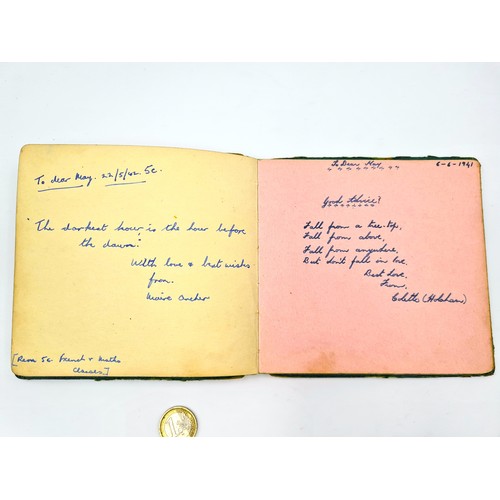 To dear May. 22/5/42 5c.
"The darkest hour is the hour before
the dawn."
With love & best wishes
from.
Maire Archer
[Rem 5c French & Maths
Classes]
To Dear May
6-6-1941
Good Advice?
Fall from a tree-top,
Fall from above,
Fall from anywhere,
But don't fall in love.
Best Love.
From,
Colette (Holohan)